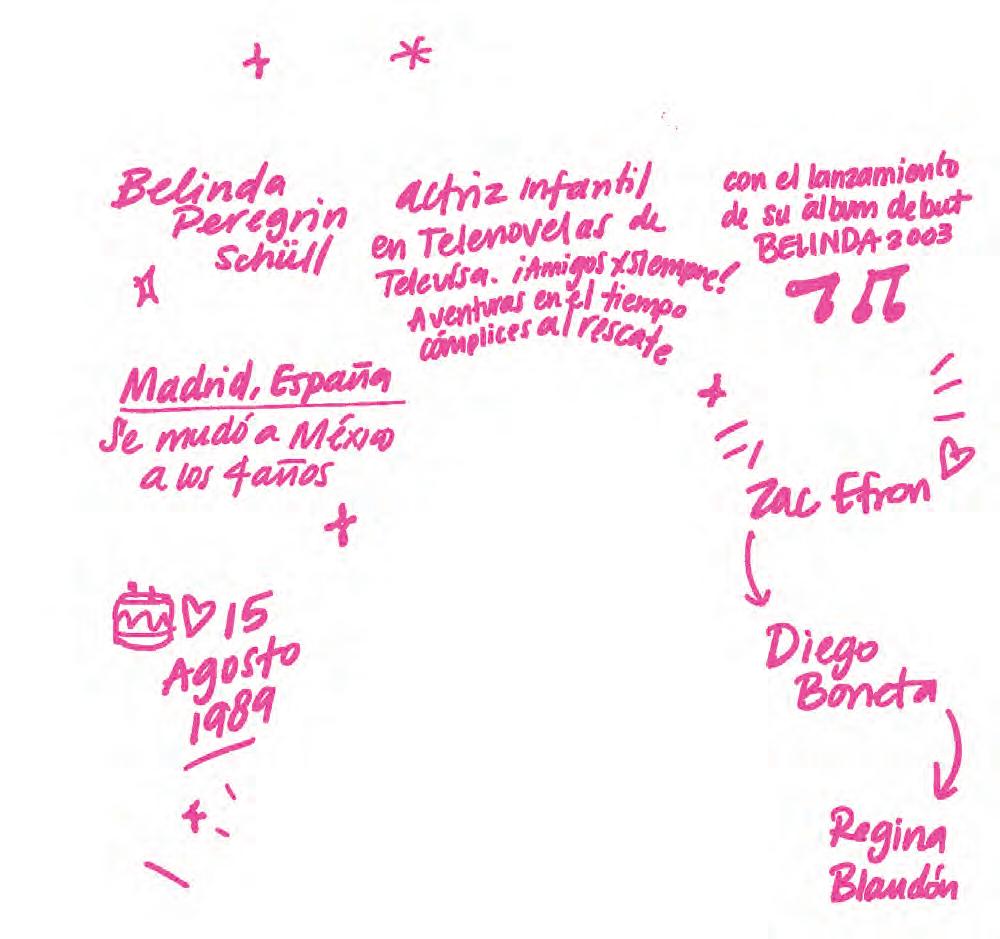 Belinda
Peregrin
Schüll
Madrid, España
Se mudó a México
a los 4 años
15
Agosto
1989
actriz Infantil
en Telenovelas de
Televisa. ¡Amigos x siempre!
Aventuras en el tiempo
cómplices al rescate
con el lanzamiento
de su álbum debut
BELINDA 2003
Zac Efron
Diego
Boneta
Regina
Blandón